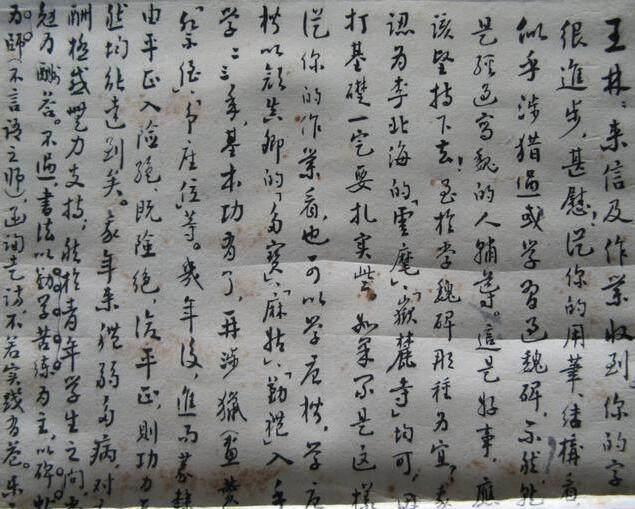 王林：来信及作業收到你的字
很進步，甚慰！從你的用筆、結構看，
似乎涉猎過或学習过魏碑，不然就
是經过寫魏的人辅導。這是好事，應
該堅持下去！至於学魏碑那種为宜？我
認为李北海的「雲麾」「嶽麓寺」均可，因
打基礎一定要扎实些。如果不是這樣
從你的作業看，也可以学唐楷，学唐
楷以颜真卿的「多寶」「麻姑」「勤禮」入手
学二三年，基本功有了，再涉獵
争座位等。幾年後，進而篆隸
由平正入险绝，既险绝，復平正，則功力
然均能達到矣。我年来體弱多病，对
酬極感無力支持，然於青年学生之问
勉为酬答。不過書法以勤学苦練为主，以碑帖
为師（不言語之師），函询走訪，不若实践为益。